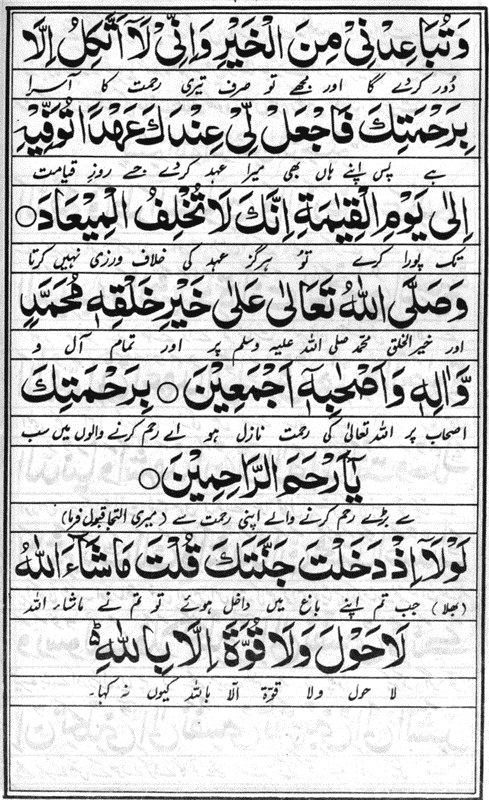 وَتُبَاعِدْنِیْ مِنَ الْخَیْرِ وَاِنِّیْ لَآ اَتَّکِلُ اِلَّا
دُور کردے گا اور مجھے تو صرف تیری رحمت کا آسرا
بِرَحْمَتِكَ فَاجْعَلْ لِّیْ عِنْدَكَ عَهْدًا تُوَفِّیْهِ
ہے پس اپنے ہاں بھی میرا عہد کردے جسے روزِ قیامت
اِلٰی یَوْمِ الْقِیٰمَةِ اِنَّكَ لَا تُخْلِفُ الْمِیْعَادَ ○
تک پورا کرے تو ہرگز عہد کی خلاف ورزی نہیں کرتا
وَصَلَّی اللهُ تَعَالٰی عَلٰی خَیْرِ خَلْقِهٖ مُحَمَّدٍ
اور خیر الخلق محمد صلی اللہ علیہ وسلم پر اور تمام آل و
وَّاٰلِهٖ وَاَصْحٰبِهٖٓ اَجْمَعِیْنَ ○ بِرَحْمَتِكَ
اصحاب پر اللہ تعالیٰ کی رحمت نازل ہو اے رحم کرنے والوں میں سب
یَآ اَرْحَمَ الرَّاحِمِیْنَ ○
سے بڑے رحم کرنے والے اپنی رحمت سے (میری التجا قبول فرما)
لَوْلَآ اِذْ دَخَلْتَ جَنَّتَكَ قُلْتَ مَا شَآءَ اللهُ
(بھلا) جب تم اپنے باغ میں داخل ہوئے تو تم نے ماشاء اللہ
لَا حَوْلَ وَلَا قُوَّةَ اِلَّا بِاللهِ ؕ
لا حول ولا قوۃ الا باللہ کیوں نہ کہا۔